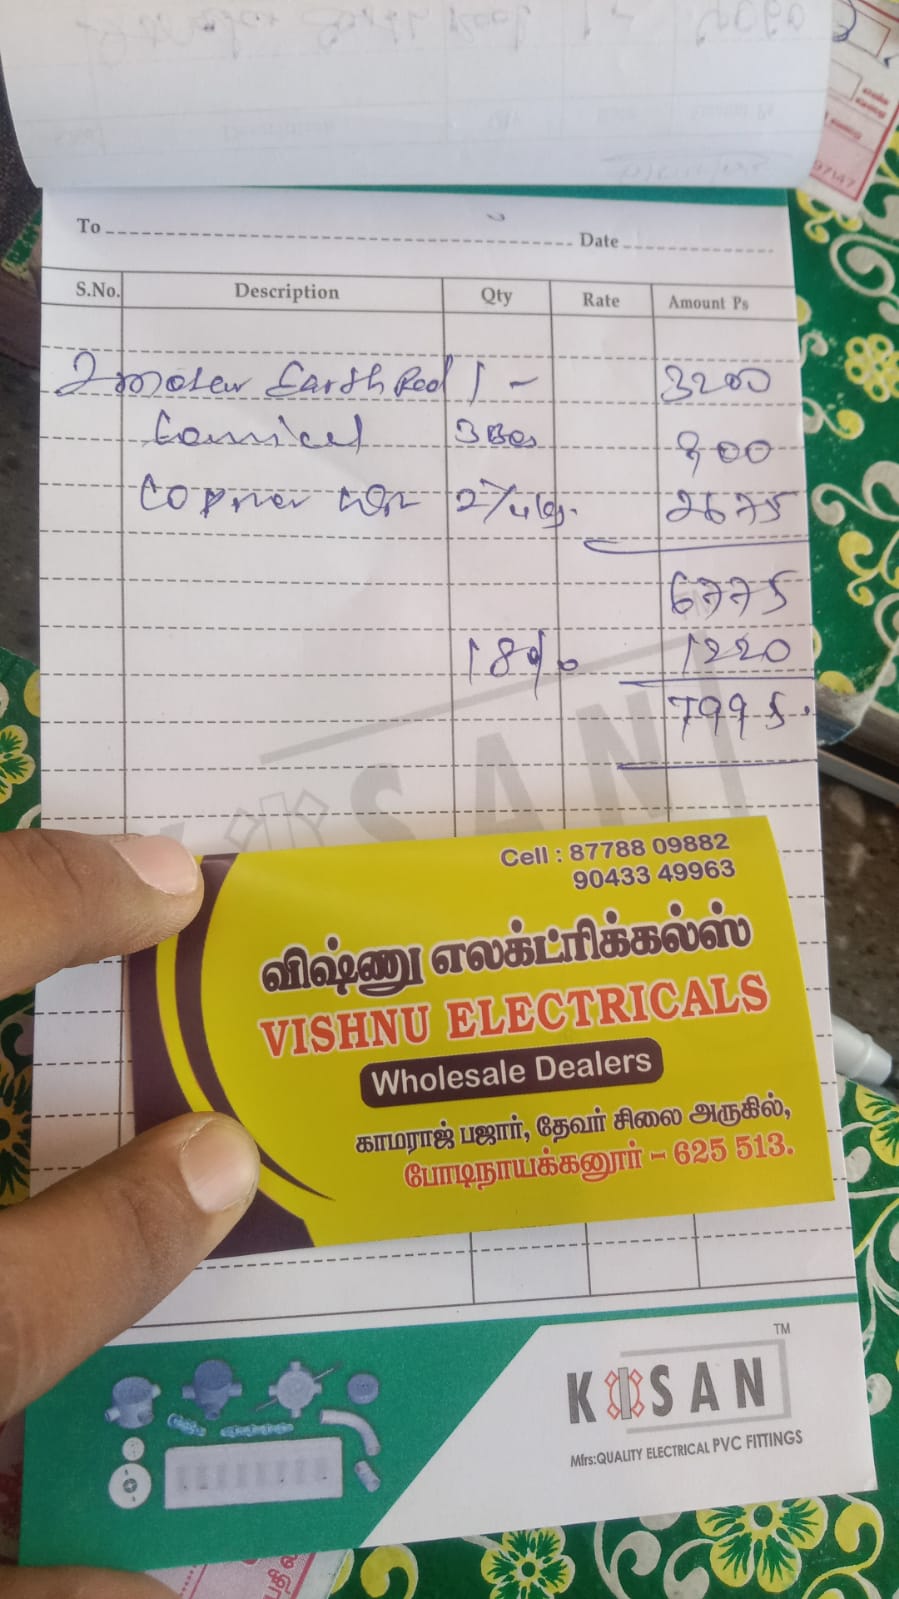 To Date
S.No. Description Qty Rate Amount Ps
2 moter Earth Rod 1 - 3200
3 900
Copper 2675
6775
18% 1220
7995.
KISAN
Cell : 87788 09882
90433 49963
விஷ்ணு எலக்ட்ரிக்கல்ஸ்
VISHNU ELECTRICALS
Wholesale Dealers
காமராஜ் பஜார், தேவர் சிலை அருகில்,
போடிநாயக்கனூர் – 625 513.
KISAN TM
Mfrs:QUALITY ELECTRICAL PVC FITTINGS